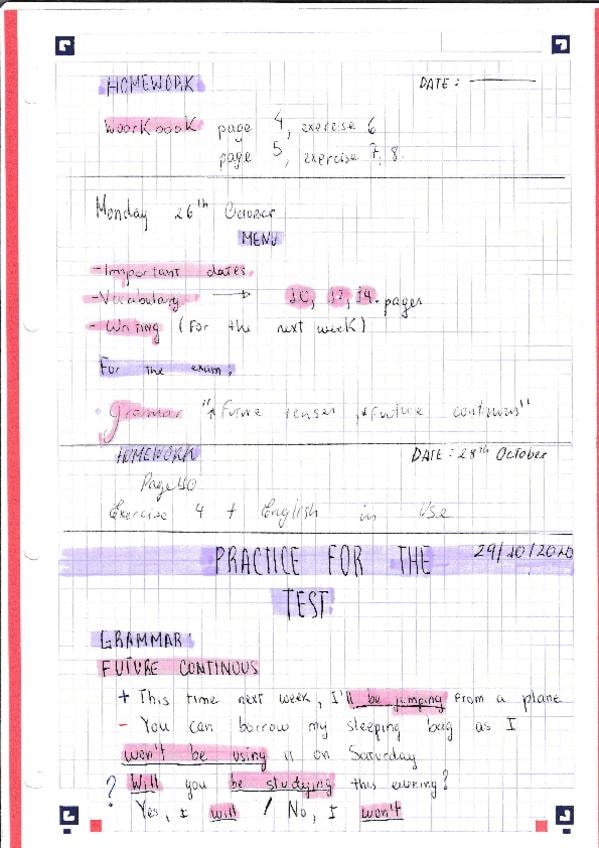 HOMEWORK DATE:
WoorKbooK page 4, exercise 6
page 5, exercise 7, 8.
Monday 26th October
MENU
- Important dates.
- Vocabulary → 10, 12, 14. pages
- Writing (For the next week)
For the exam:
Grammar "*Future tenses, *future continuous"
HOMEWORK DATE: 28th October
Page 10
Exercise 4 + English in Use
PRACTICE FOR THE 29/10/2020
TEST
GRAMMAR:
FUTURE CONTINOUS
+ This time next week, I'll be jumping from a plane
- You can borrow my sleeping bag as I
won't be using it on Saturday
? Will you be studying this evening?
Yes, I will / No, I won't